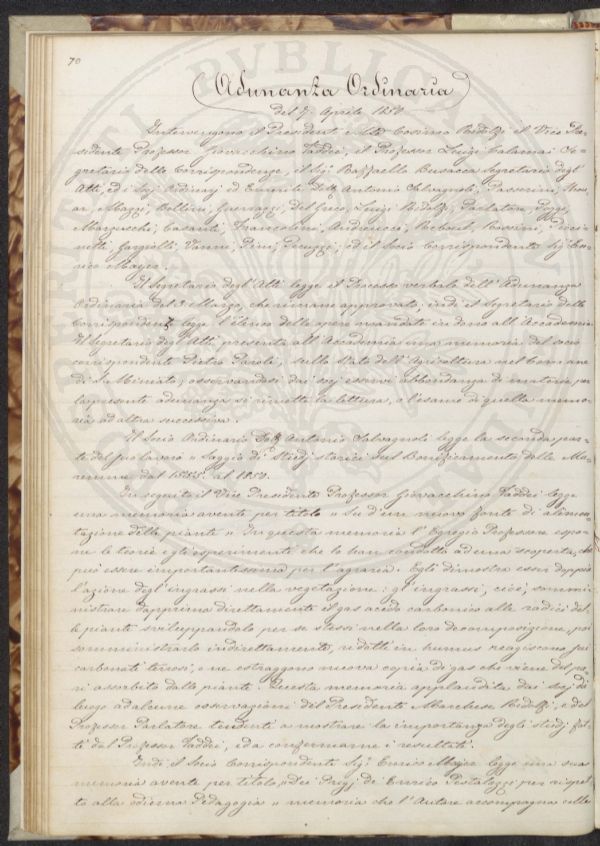 70
Adunanza Ordinaria
del 7. Aprile 1850
Intervengono il Presidente Cosimo Ridolfi il Vice Pre-
sidente Professor Giovacchino Taddei, il Professor Luigi Calamai Se-
gretario delle Corrispondenze, il Sig. Raffaello Busacca Segretario degl'
Atti, ed i Sigg. Ordinarj ed Emeriti Dott. Antonio Salvagnoli, Passerini,
Mazzi, Bellini, Guerrazzi, Del Greco, Luigi Ridolfi, Parlatore, Poggi,
Mazzeschi, Casanti, Franceschi, Andreucci, Reboul, Rossini,
Gazzeri, Vanni, Pini, Peruzzi, ed il socio Corrispondente Sig. En-
rico Mayer.
Il Segretario degl'Atti legge il Processo verbale dell'Adunanza
Ordinaria del Marzo, che rimane approvato, indi il Segretario delle
Corrispondenze legge l'elenco delle opere mandate in dono all'Accademia.
Il Segretario degl'Atti presenta all'Accademia una memoria del socio
corrispondente Pietro Paroli, sullo Stato dell'Agricoltura nel Comune
di S. Miniato; osservandosi dai socj esservi abbondanza di materia per
la presente adunanza si rimette la lettura, e l'esame di quella memo-
ria ad altra successiva.
Il Socio Ordinario Dott. Antonio Salvagnoli legge la seconda par-
te del suo lavoro "Saggio di Studj storici sul Bonificamento delle Ma-
remme dal 1828. al 1850.
In seguito il Vice Presidente Professor Giovacchino Taddei legge
una memoria avente per titolo "Su d'un nuovo fonte di alimen-
tazione delle piante" In questa memoria l'Egregio Professore espo-
ne le teorie e gli esperimenti che lo han condotto ad una scoperta, che
può essere importantissima per l'agraria. Egli dimostra esser doppia
l'azione degl'ingrassi nella vegetazione: gl'ingrassi, cioè, sommi-
nistrare dapprima direttamente il gas acido carbonico alle radici del-
le piante sviluppandolo per se stessi nella loro decomposizione, poi
somministrarlo indirettamente, ridotti in humus reagiscono sui
carbonati terrosi, e ne estraggono nuova copia di gas che viene del pa-
ri assorbito dalle piante. Questa memoria applaudita dai socj dà
luogo ad alcune osservazioni del Presidente Marchese Ridolfi, e del
Professor Parlatore tendenti a mostrare la importanza degli studj fat-
ti dal Professor Taddei, ed a confermarne i resultati.
Indi il Socio Corrispondente Sig. Enrico Mayer legge una sua
memoria avente per titolo, "Dei Pregj di Enrico Pestalozzi per rispet-
to alla odierna Pedagogia" memoria che l'Autore accompagna colla